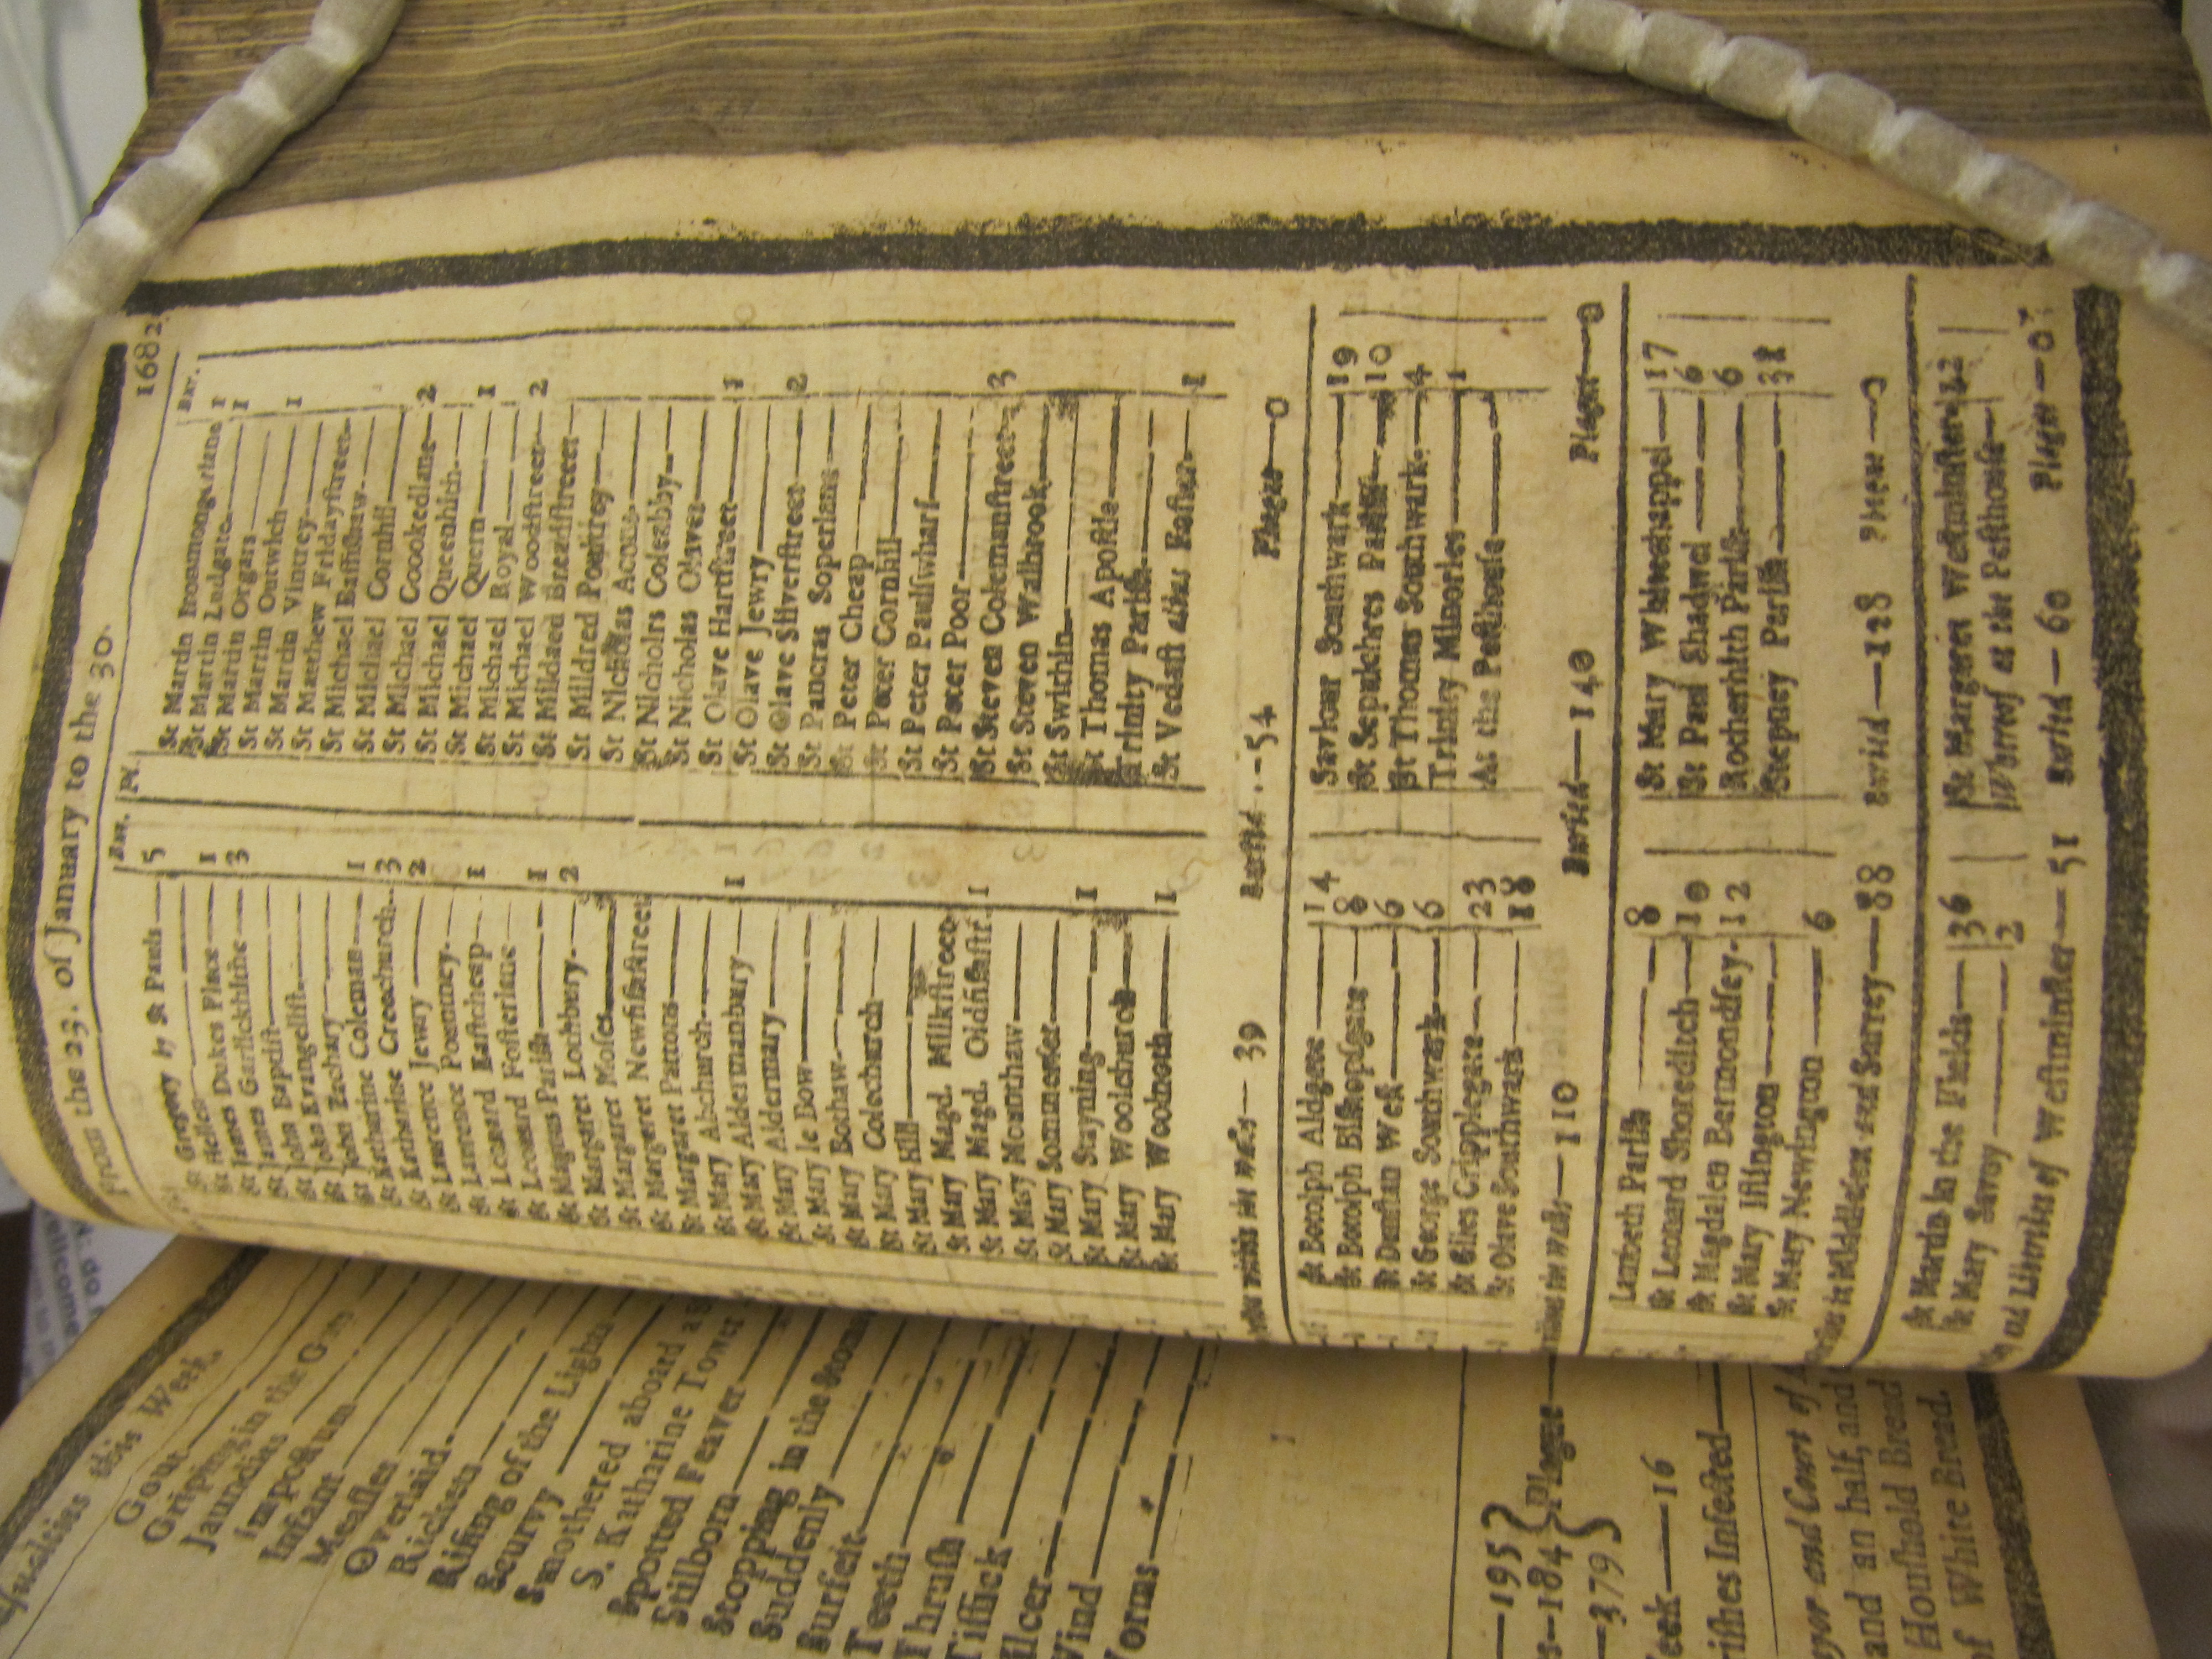 From the 23. of January to the 30. 1682.
Bur. Pl.
St Gregory by St Pauls 5
St Hellen
St James Dukes Place 1
St James Garlickhithe 3
St John Baptist
St John Evangelist
St John Zachary
St Katharine Coleman 1
St Katharine Creechurch 3
St Lawrence Jewry 2
St Lawrence Pountney
St Leonard Eastcheap 1
St Leonard Fosterlane
St Magnus Parish 1
St Margaret Lothbury 2
St Margaret Moses
St Margaret Newfishstreet
St Margaret Pattons
St Mary Abchurch
St Mary Aldermanbury 1
St Mary Aldermary
St Mary le Bow
St Mary Bothaw
St Mary Colechurch
St Mary Hill
St Mary Magd. Milkstreet
St Mary Magd. Oldfishstr. 1
St Mary Mounthaw
St Mary Sommerset
St Mary Stayning 1
St Mary Woolchurch
St Mary Woolnoth 1
Bur.
St Martin Ironmongerlane 1
St Martin Ludgate 1
St Martin Orgars
St Martin Outwich 1
St Martin Vintrey
St Matthew Fridaystreet
St Michael Bassishaw
St Michael Cornhil
St Michael Coookedlane 2
St Michael Queenhith
St Michael Quern 1
St Michael Royal
St Michael Woodstreet 2
St Mildaed Breadstreet
St Mildred Poultrey
St Nicholas Acons
St Nicholrs Coleabby
St Nicholas Olaves
St Olave Hartstreet 1
St Olave Jewry
St Olave Silverstreet 2
St Pancras Soperlane
St Peter Cheap
St Peter Cornhil
St Peter Paulswharf
St Peter Poor
St Steven Colemanstreet 3
St Steven Walbrook
St Swithin
St Thomas Apostle
Trinity Parish
St Vedast alias Foster 1
within the Walls — 39 Buried — 54 Plague — 0
St Botolph Aldgate 14
St Botolph Bishopsgate 8
St Dunstan West 6
St George Southwark 6
St Giles Cripplegate 23
St Olave Southwark 18
Saviour Southwark 19
St Sepulchres Parish 10
St Thomas Southwark 4
Trinity Minories 1
At the Pesthouse
without the Walls — 110 Buried — 140 Plague — 0
Lambeth Parish 8
St Leonard Shoreditch 10
St Magdalen Bermondsey 12
St Mary Islington
St Mary Newington 6
St Mary Whitechappel 17
St Paul Shadwel 6
Rotherhith Parish 6
Stepney Parish
in Middlesex and Surrey — 88 Buried — 128 Plague — 0
St Martin in the Fields 36
St Mary Savoy 2
St Margaret Westminster
Whereof at the Pesthouse
and Liberties of Westminster — 51 Buried — 60 Plague — 0
this Week.
Gout
Griping in the
Jaundies
Impostum
Infant
Measles
Overlaid
Rickets
Rising of the Lights
Scurvy
Smothered aboard a
S. Katharine Tower
Spotted Feaver
Stilborn
Stopping in the Stom
Suddenly
Surfeit
Teeth
Thrush
Tissick
Ulcer
Wind
Worms
195
184 Plague
379
eek — 16
rishes Infected
yor and Court of
and an half, and
Houshold Bread
of White Bread.